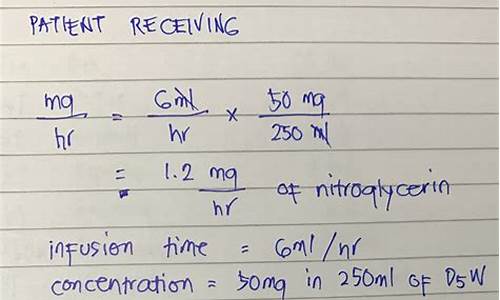 PATIENT RECEIVING
mg/hr = 6ml/hr × 50 mg/250 ml
= 1.2 mg/hr of nitroglycerin
infusion time = 6ml/hr
concentration = 50mg in 250ml OF D5W